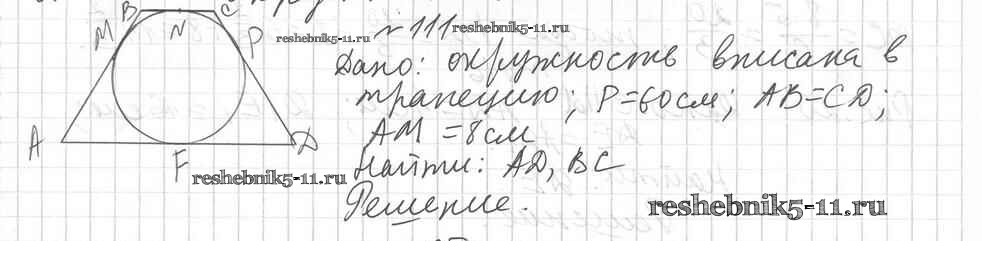 B C
M N P
№ 111
reshebnik5-11.ru
reshebnik5-11.ru
Дано: окружность вписана в
трапецию; P=60см; AB=CD;
AM=8см
A F D
Найти: AD, BC
reshebnik5-11.ru
Решение.
reshebnik5-11.ru